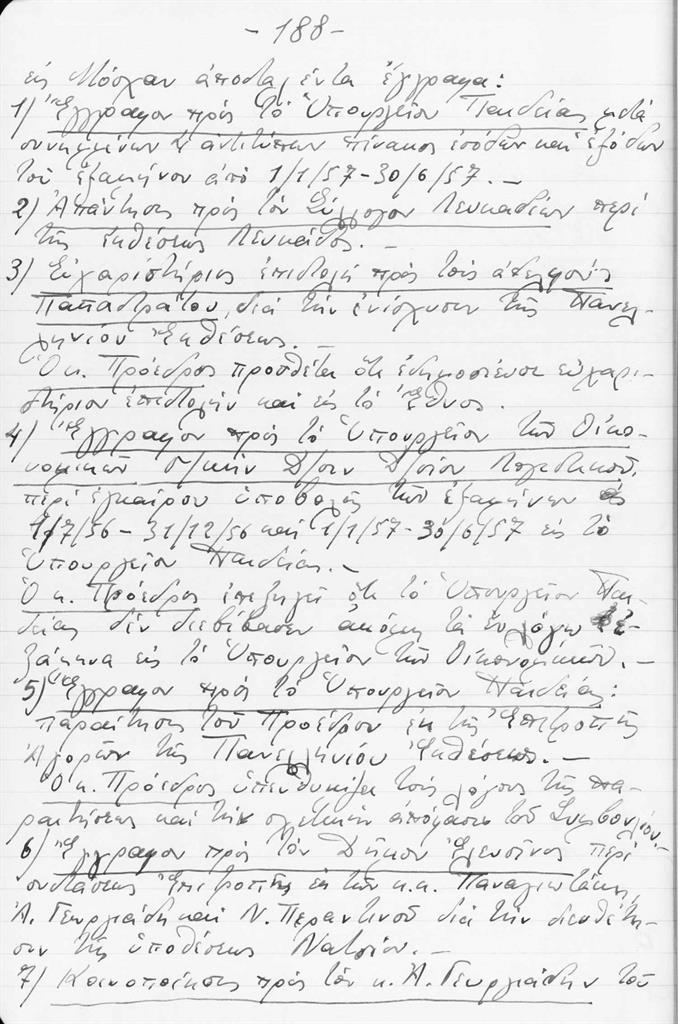 - 188 -
εἰς Μόσχαν ἀποσταλέντα ἔγγραφα:
1) Ἔγγραφον πρὸς τὸ Ὑπουργεῖον Παιδείας μετὰ
συνημμένων ἀντιτύπων πίνακος ἐσόδων καὶ ἐξόδων
τοῦ ἑξαμήνου ἀπὸ 1/1/57-30/6/57. —
2) Ἀπάντησις πρὸς τὸν Σύλλογον Λευκαδίων περὶ
τῆς ἐκθέσεως Λευκάδος. —
3) Εὐχαριστήριος ἐπιστολὴ πρὸς τοὺς ἀδελφοὺς
Παπαστράτου, διὰ τὴν ἐνίσχυσιν τῆς Πανελ-
ληνίου Ἐκθέσεως. —
Ὁ κ. Πρόεδρος προσθέτει ὅτι ἐδημοσίευσε εὐχαρι-
στήριον ἐπιστολὴν καὶ εἰς τὸ Ἔθνος.
4) Ἔγγραφον πρὸς τὸ Ὑπουργεῖον τῶν Οἰκο-
νομικῶν Δ/σιν Δ/σίου Λογιστικοῦ,
περὶ ἐγκαίρου ὑποβολῆς τῶν ἑξαμήνων
1/7/56 - 31/12/56 καὶ 1/1/57-30/6/57 εἰς τὸ
Ὑπουργεῖον Παιδείας. —
Ὁ κ. Πρόεδρος ἐπεξηγεῖ ὅτι τὸ Ὑπουργεῖον Παι-
δείας δὲν διεβίβασεν ἀκόμη τὰ ἐν λόγῳ ἑ-
ξάμηνα εἰς τὸ Ὑπουργεῖον τῶν Οἰκονομικῶν. —
5) Ἔγγραφον πρὸς τὸ Ὑπουργεῖον Παιδείας:
παραίτησις τοῦ Προέδρου ἐκ τῆς Ἐπιτροπῆς
Ἀγορῶν τῆς Πανελληνίου Ἐκθέσεως. —
Ὁ κ. Πρόεδρος ὑπενθυμίζει τοὺς λόγους τῆς πα-
ραιτήσεως καὶ τὴν σχετικὴν ἀπόφασιν τοῦ Συμβουλίου. —
6) Ἔγγραφον πρὸς τὸν Δῆμον Ἐλευσῖνος περὶ
συστάσεως Ἐπιτροπῆς ἐκ τῶν κ.κ. Παναγιωτάκη,
Ἀ. Γεωργιάδη καὶ Ν. Περαντινοῦ διὰ τὴν διευθέτη-
σιν τῆς ὑποθέσεως Νατσίου. —
7) Κοινοποίησις πρὸς τὸν κ. Ἀ. Γεωργιάδην τοῦ